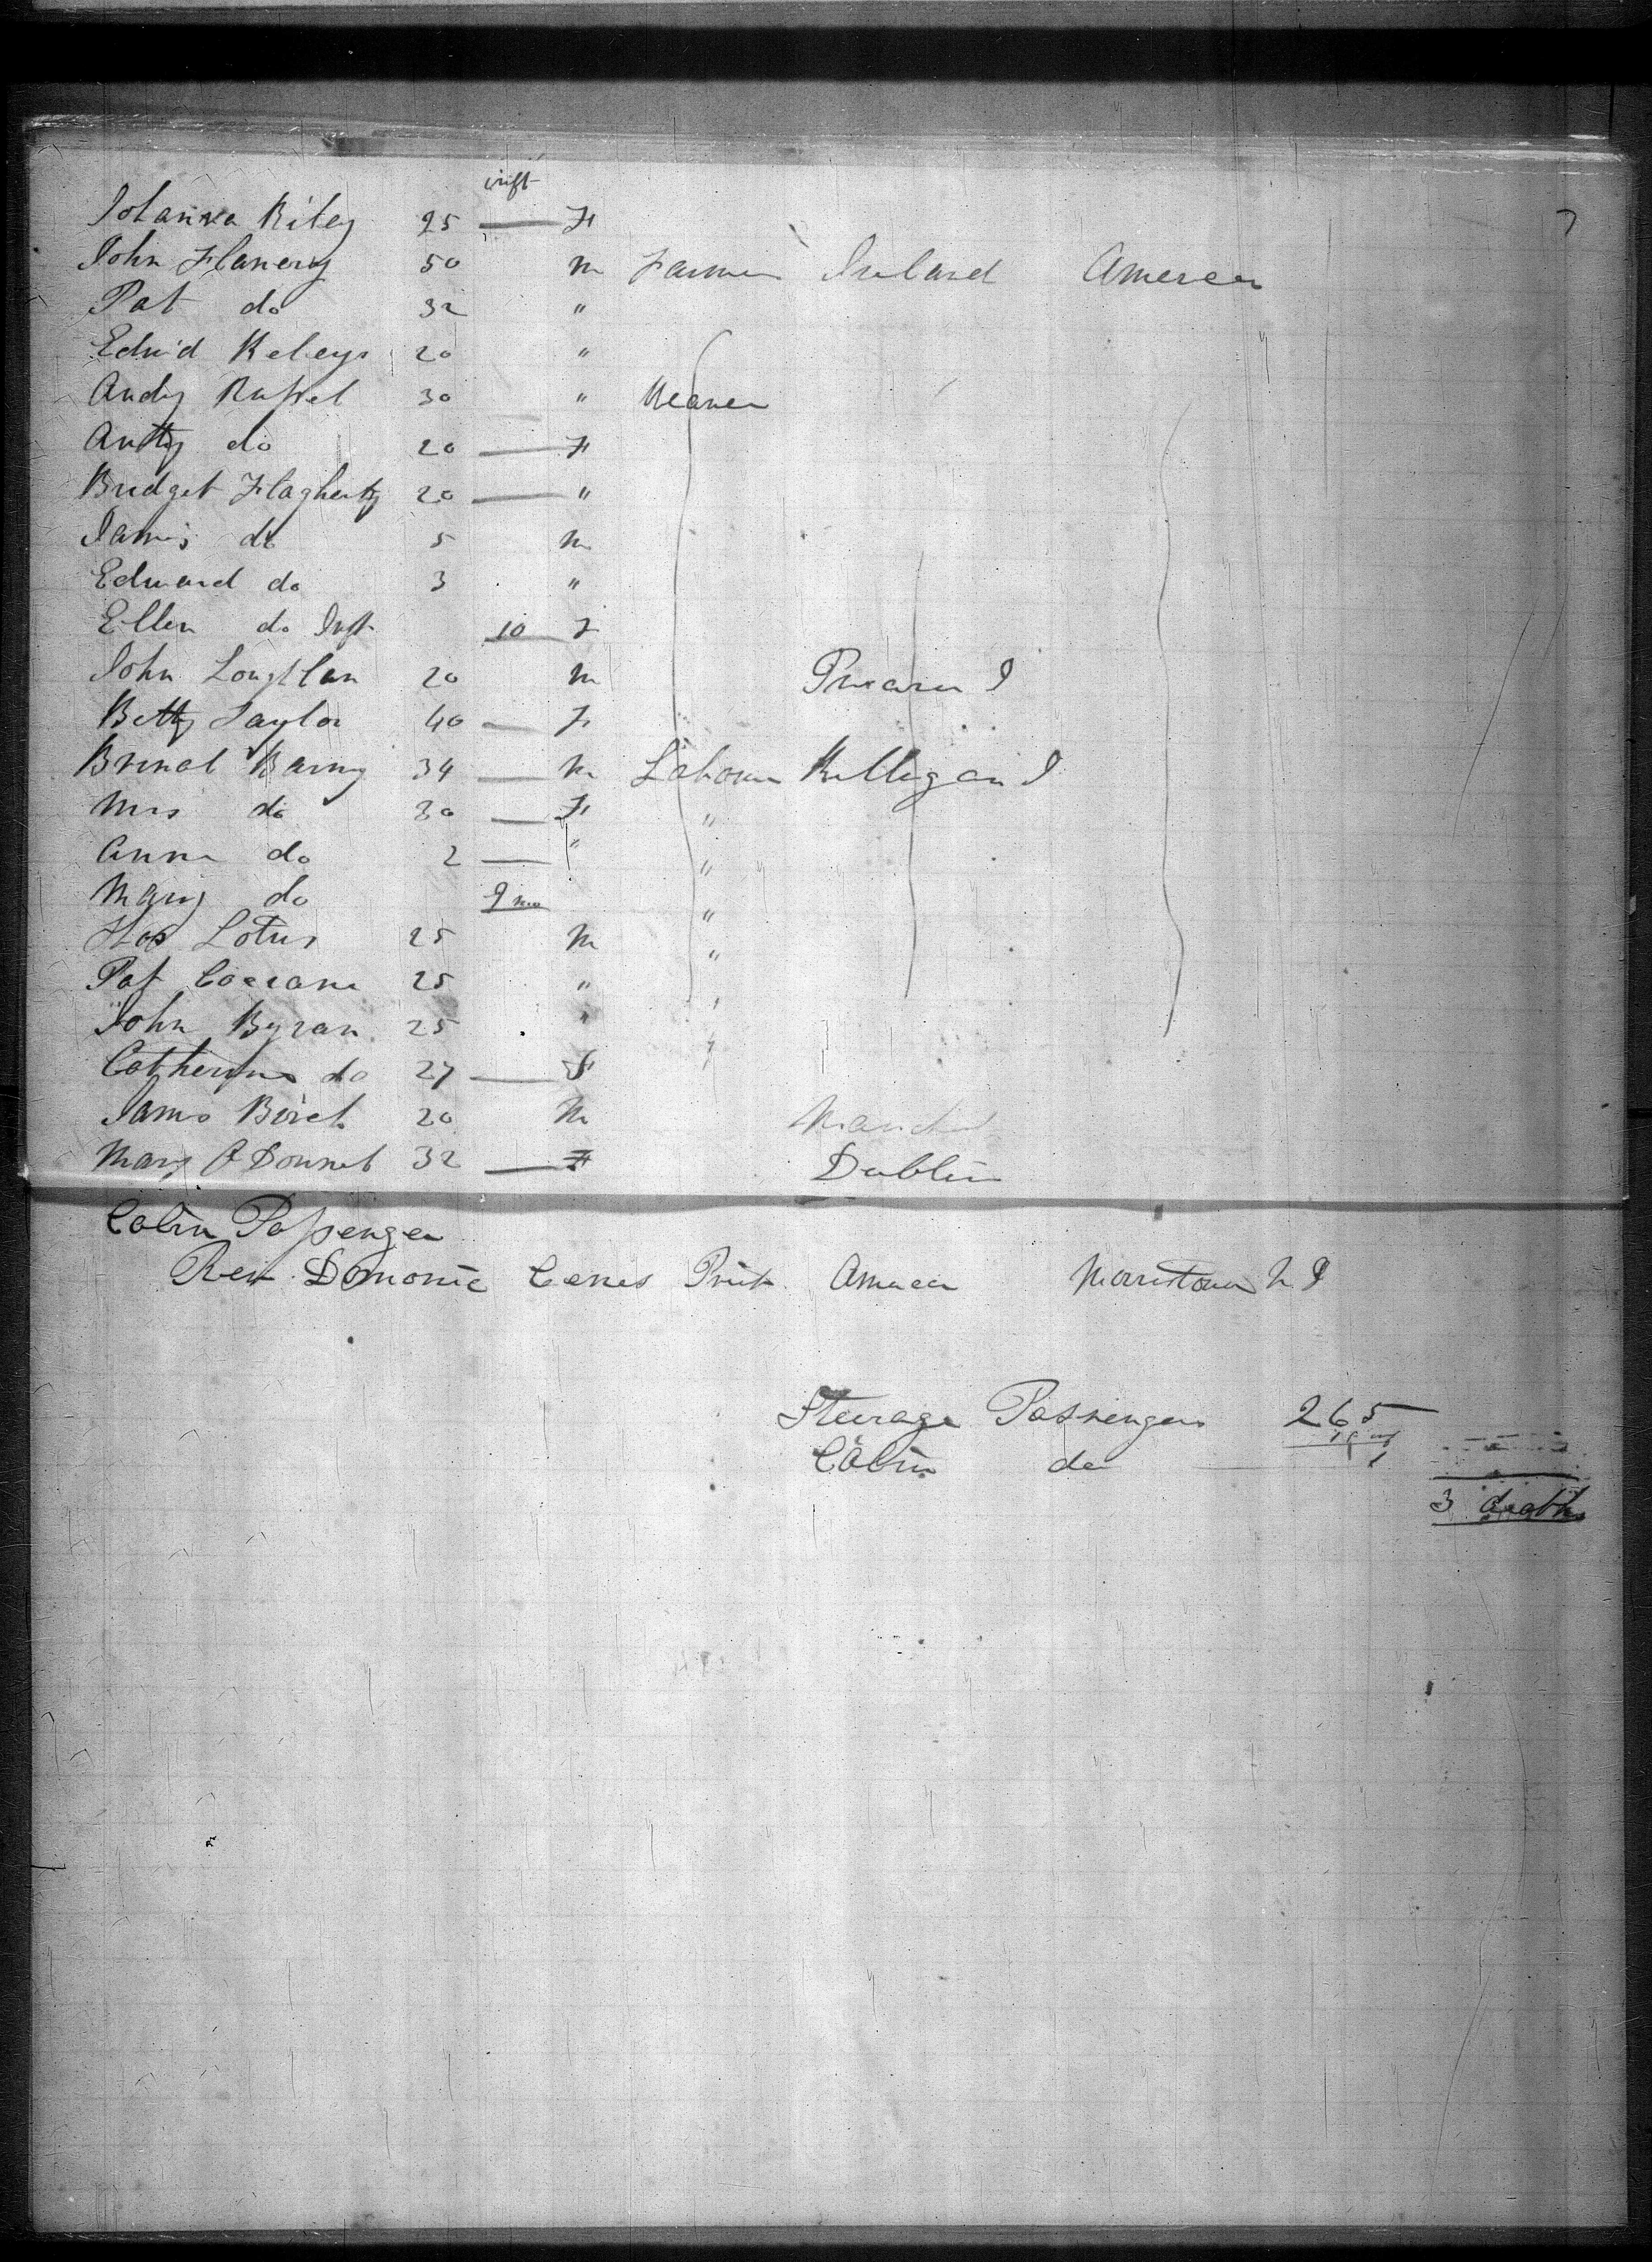 inft
Johanna Riley 25 F
John Flanery 50 m Farmer Ireland America
Pat do 32 "
Edw'd Keleys 20 "
Andy Russel 30 " Weaver
Antty do 20 F
Bridget Flagherty 20 "
James do 5 m
Edward do 3 "
Ellen do Inft 10 F
John Loughlan 20 m
Betty Taylor 40 F
Barny 34 m Labourer I
Mrs do 30 F "
Anna do 2 " "
Mary do 9 mo "
Lotus 25 m "
Pat Cocrane 25 "
John Byran 25 "
Catherine do 27 F
James Birch 20 m
Mary O Donnel 32 F Dublin
Cabin Passenger
Rev. Domonic Priest America Morristown N J
Steerage Passengers 265
Cabin do 1
3 deaths